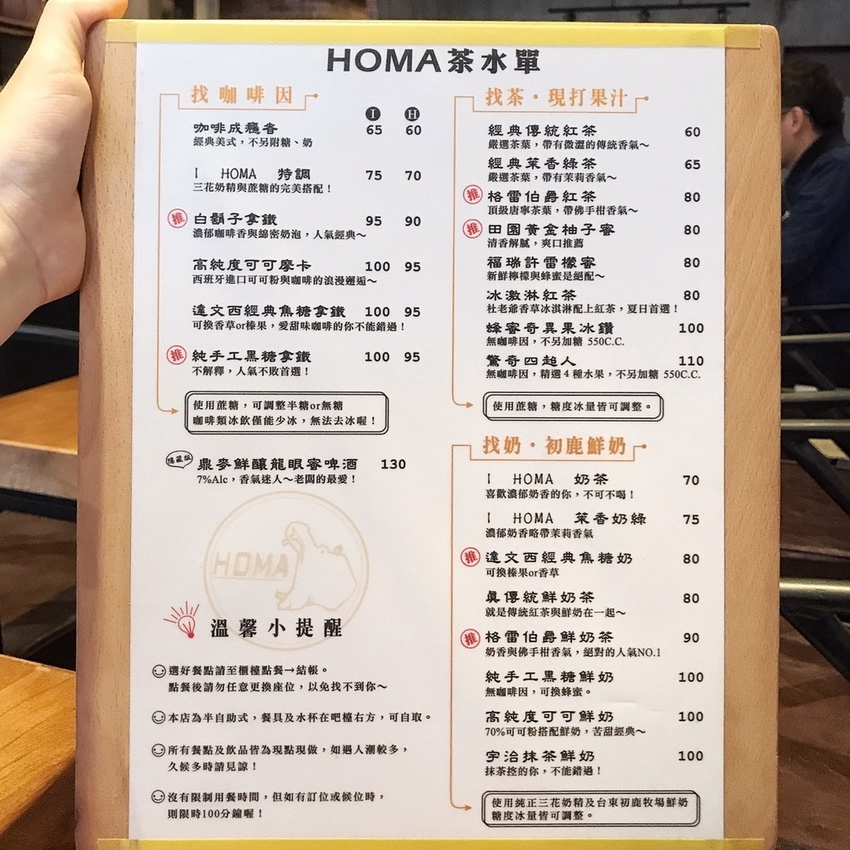 HOMA茶水單
找咖啡因
I H
咖啡成癮者 65 60
經典美式，不另附糖、奶
I HOMA 特調 75 70
三花奶精與蔗糖的完美搭配！
推 白鬍子拿鐵 95 90
濃郁咖啡香與綿密奶泡，人氣經典～
高純度可可摩卡 100 95
西班牙進口可可粉與咖啡的浪漫邂逅～
達文西經典焦糖拿鐵 100 95
可換香草or榛果，愛甜味咖啡的你不能錯過！
推 純手工黑糖拿鐵 100 95
不解釋，人氣不敗首選！
使用蔗糖，可調整半糖or無糖
咖啡類冰飲僅能少冰，無法去冰喔！
隱藏版 鼎麥鮮釀龍眼蜜啤酒 130
7%Alc，香氣迷人～老闆的最愛！
HOMA
溫馨小提醒
選好餐點請至櫃檯點餐→結帳。
點餐後請勿任意更換座位，以免找不到你～
本店為半自助式，餐具及水杯在吧檯右方，可自取。
所有餐點及飲品皆為現點現做，如遇人潮較多，
久候多時請見諒！
沒有限制用餐時間，但如有訂位或候位時，
則限時100分鐘喔！
找茶·現打果汁
經典傳統紅茶 60
嚴選茶葉，帶有微澀的傳統香氣～
經典茉香綠茶 65
嚴選茶葉，帶有茉莉香氣～
推 格雷伯爵紅茶 80
頂級唐寧茶葉，帶佛手柑香氣～
推 田園黃金柚子蜜 80
清香解膩，爽口推薦
福瑞許雷檬蜜 80
新鮮檸檬與蜂蜜是絕配～
冰激淋紅茶 80
杜老爺香草冰淇淋配上紅茶，夏日首選！
蜂蜜奇異果冰鑽 100
無咖啡因，不另加糖 550C.C.
驚奇四超人 110
無咖啡因，精選4種水果，不另加糖 550C.C.
使用蔗糖，糖度冰量皆可調整。
找奶·初鹿鮮奶
I HOMA 奶茶 70
喜歡濃郁奶香的你，不可不喝！
I HOMA 茉香奶綠 75
濃郁奶香略帶茉莉香氣
推 達文西經典焦糖奶 80
可換榛果or香草
真傳統鮮奶茶 80
就是傳統紅茶與鮮奶在一起～
推 格雷伯爵鮮奶茶 90
奶香與佛手柑香氣，絕對的人氣NO.1
純手工黑糖鮮奶 100
無咖啡因，可換蜂蜜。
高純度可可鮮奶 100
70%可可粉搭配鮮奶，苦甜經典～
宇治抹茶鮮奶 100
抹茶控的你，不能錯過！
使用純正三花奶精及台東初鹿牧場鮮奶
糖度冰量皆可調整。